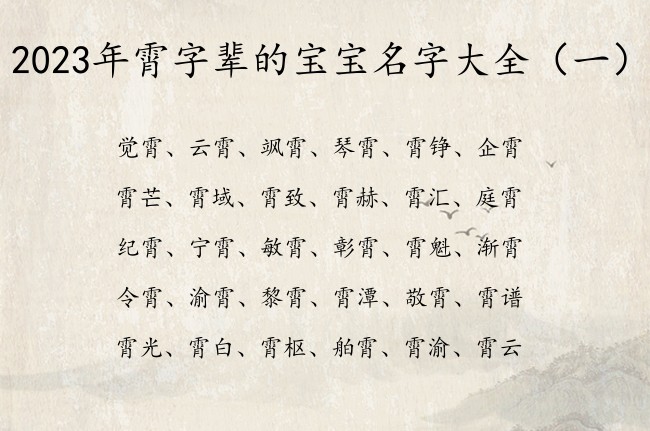 2023年霄字辈的宝宝名字大全（一）
觉霄、云霄、飒霄、琴霄、霄铮、企霄
霄芒、霄域、霄致、霄赫、霄汇、庭霄
纪霄、宁霄、敏霄、彰霄、霄魁、渐霄
令霄、渝霄、黎霄、霄潭、敬霄、霄谱
霄光、霄白、霄枢、舶霄、霄渝、霄云